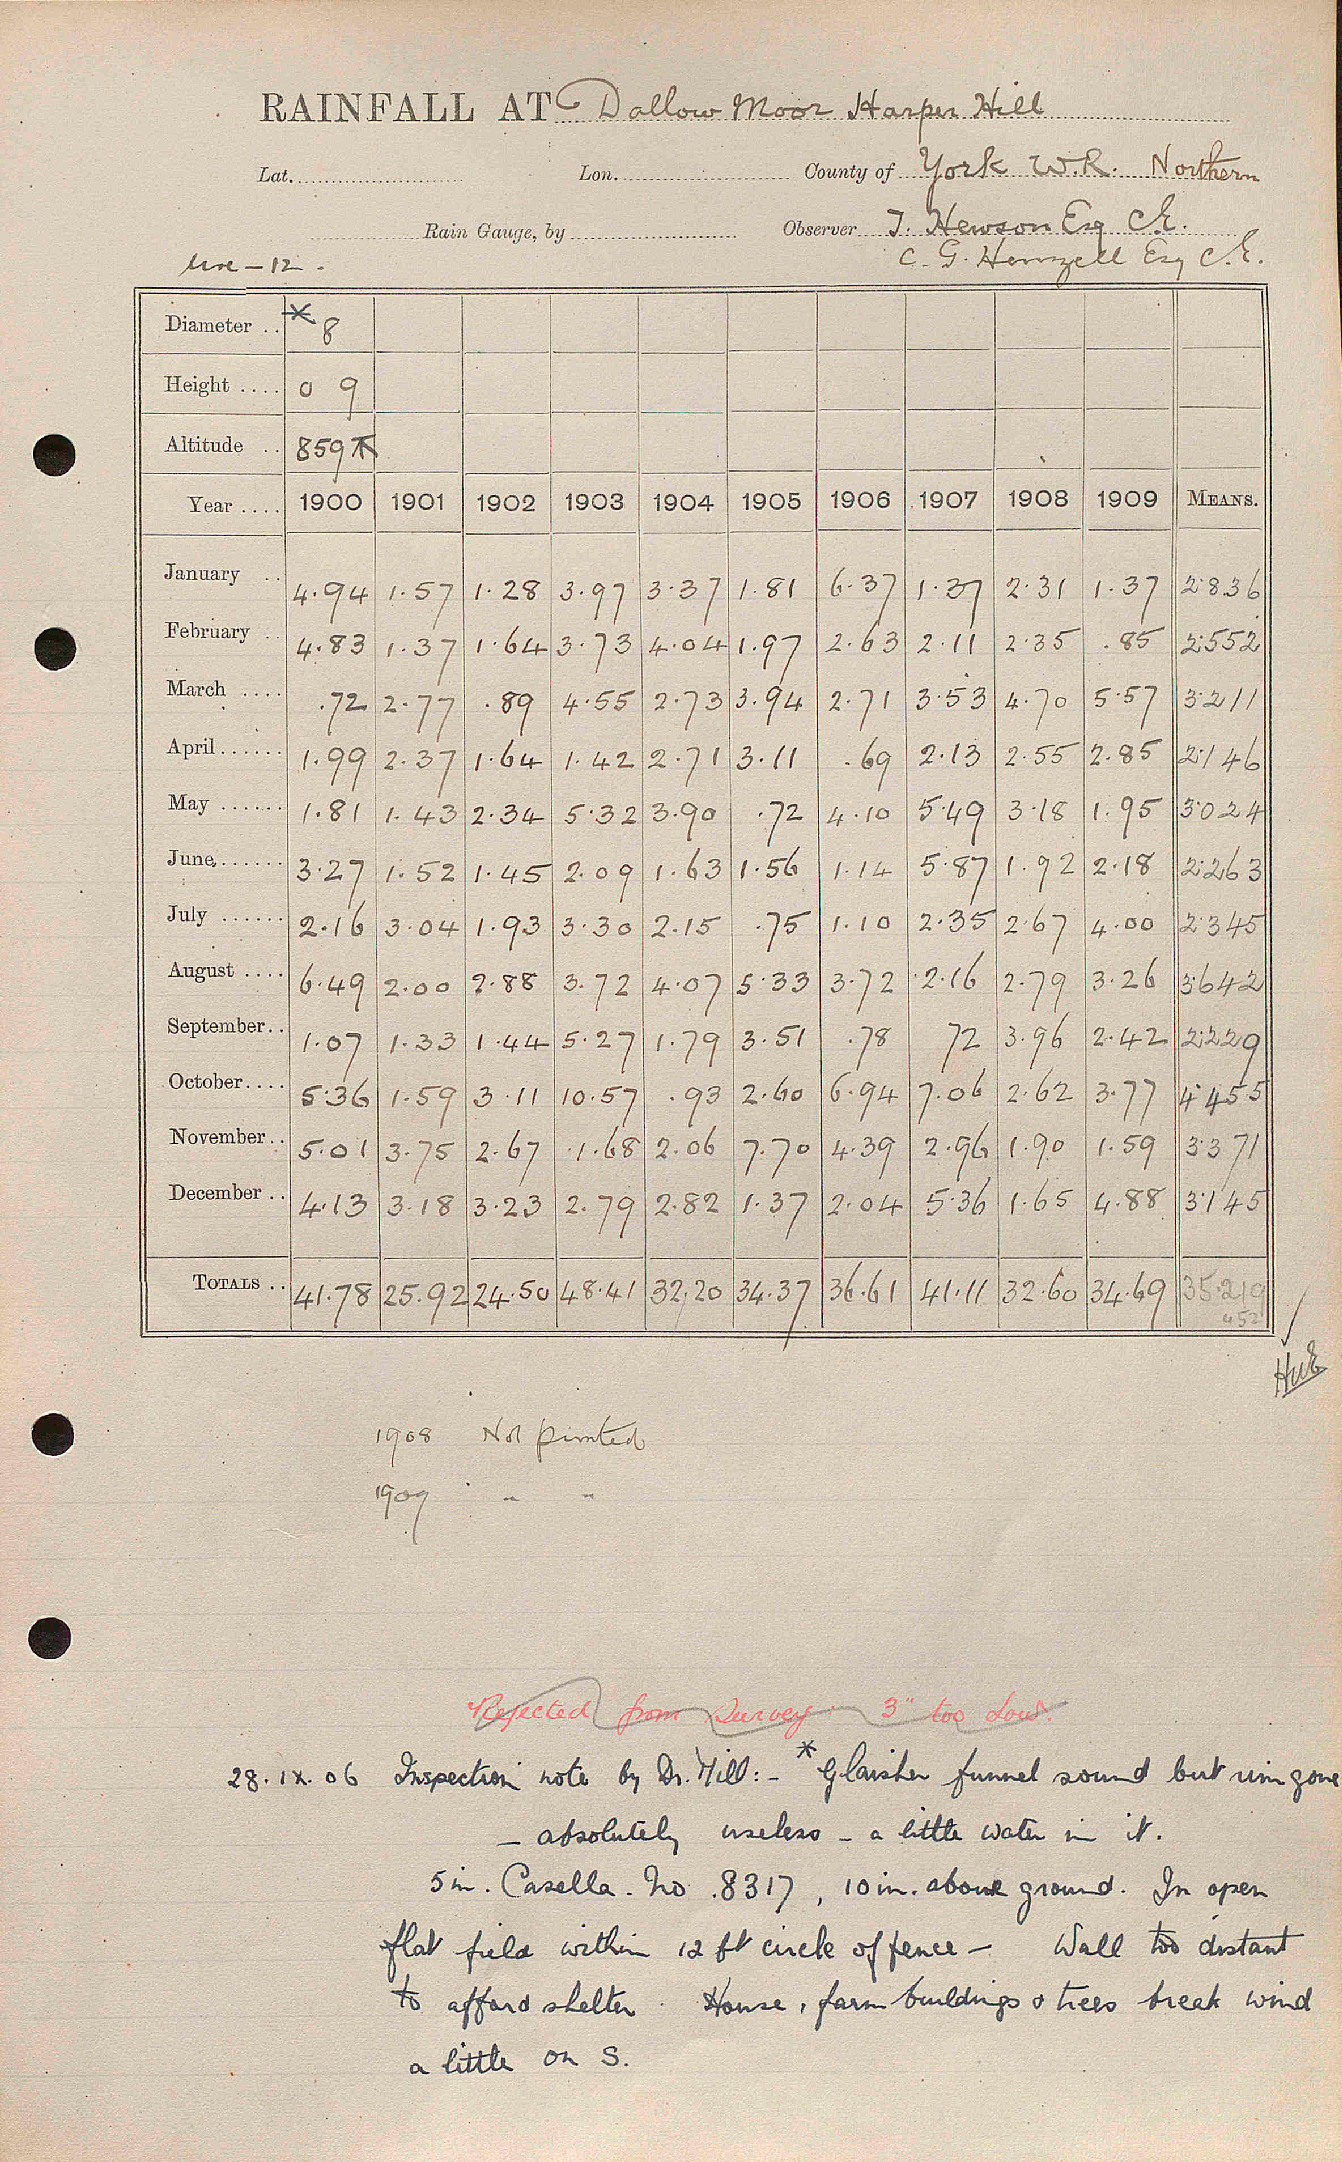 RAINFALL AT Dallow Moor Harper Hill
Lat. Lon. County of York W.R. Northern
Rain Gauge, by Observer T. Hewson Esq C.E.
Ure - 12. C. G. Henzell Esq C.E.
Diameter .. * 8
Height .... 0 9
Altitude .. 859
Year .... 1900 1901 1902 1903 1904 1905 1906 1907 1908 1909 MEANS.
January .. 4.94 1.57 1.28 3.97 3.37 1.81 6.37 1.37 2.31 1.37 2.836
February .. 4.83 1.37 1.64 3.73 4.04 1.97 2.63 2.11 2.35 .85 2.552
March .... .72 2.77 .89 4.55 2.73 3.94 2.71 3.53 4.70 5.57 3.211
April ...... 1.99 2.37 1.64 1.42 2.71 3.11 .69 2.13 2.55 2.85 2.146
May ...... 1.81 1.43 2.34 5.32 3.90 .72 4.10 5.49 3.18 1.95 3.024
June ...... 3.27 1.52 1.45 2.09 1.63 1.56 1.14 5.87 1.92 2.18 2.263
July ...... 2.16 3.04 1.93 3.30 2.15 .75 1.10 2.35 2.67 4.00 2.345
August .... 6.49 2.00 2.88 3.72 4.07 5.33 3.72 2.16 2.79 3.26 3.642
September .. 1.07 1.33 1.44 5.27 1.79 3.51 .78 72 3.96 2.42 2.229
October .... 5.36 1.59 3.11 10.57 .93 2.60 6.94 7.06 2.62 3.77 4.455
November .. 5.01 3.75 2.67 1.68 2.06 7.70 4.39 2.96 1.90 1.59 3.371
December .. 4.13 3.18 3.23 2.79 2.82 1.37 2.04 5.36 1.65 4.88 3.145
TOTALS .. 41.78 25.92 24.50 48.41 32.20 34.37 36.61 41.11 32.60 34.69 35.219
1908 Not printed
1909 " "
Rejected from Survey 3" too low.
28.IX.06 Inspection note by Dr. Mill:- * Glaisher funnel sound but rim gone
- absolutely useless - a little water in it.
5 in. Casella. No. 8317, 10 in. above ground. In open
flat field within 12 ft circle of fence - Wall too distant
to afford shelter. House, farm buildings & trees break wind
a little on S.